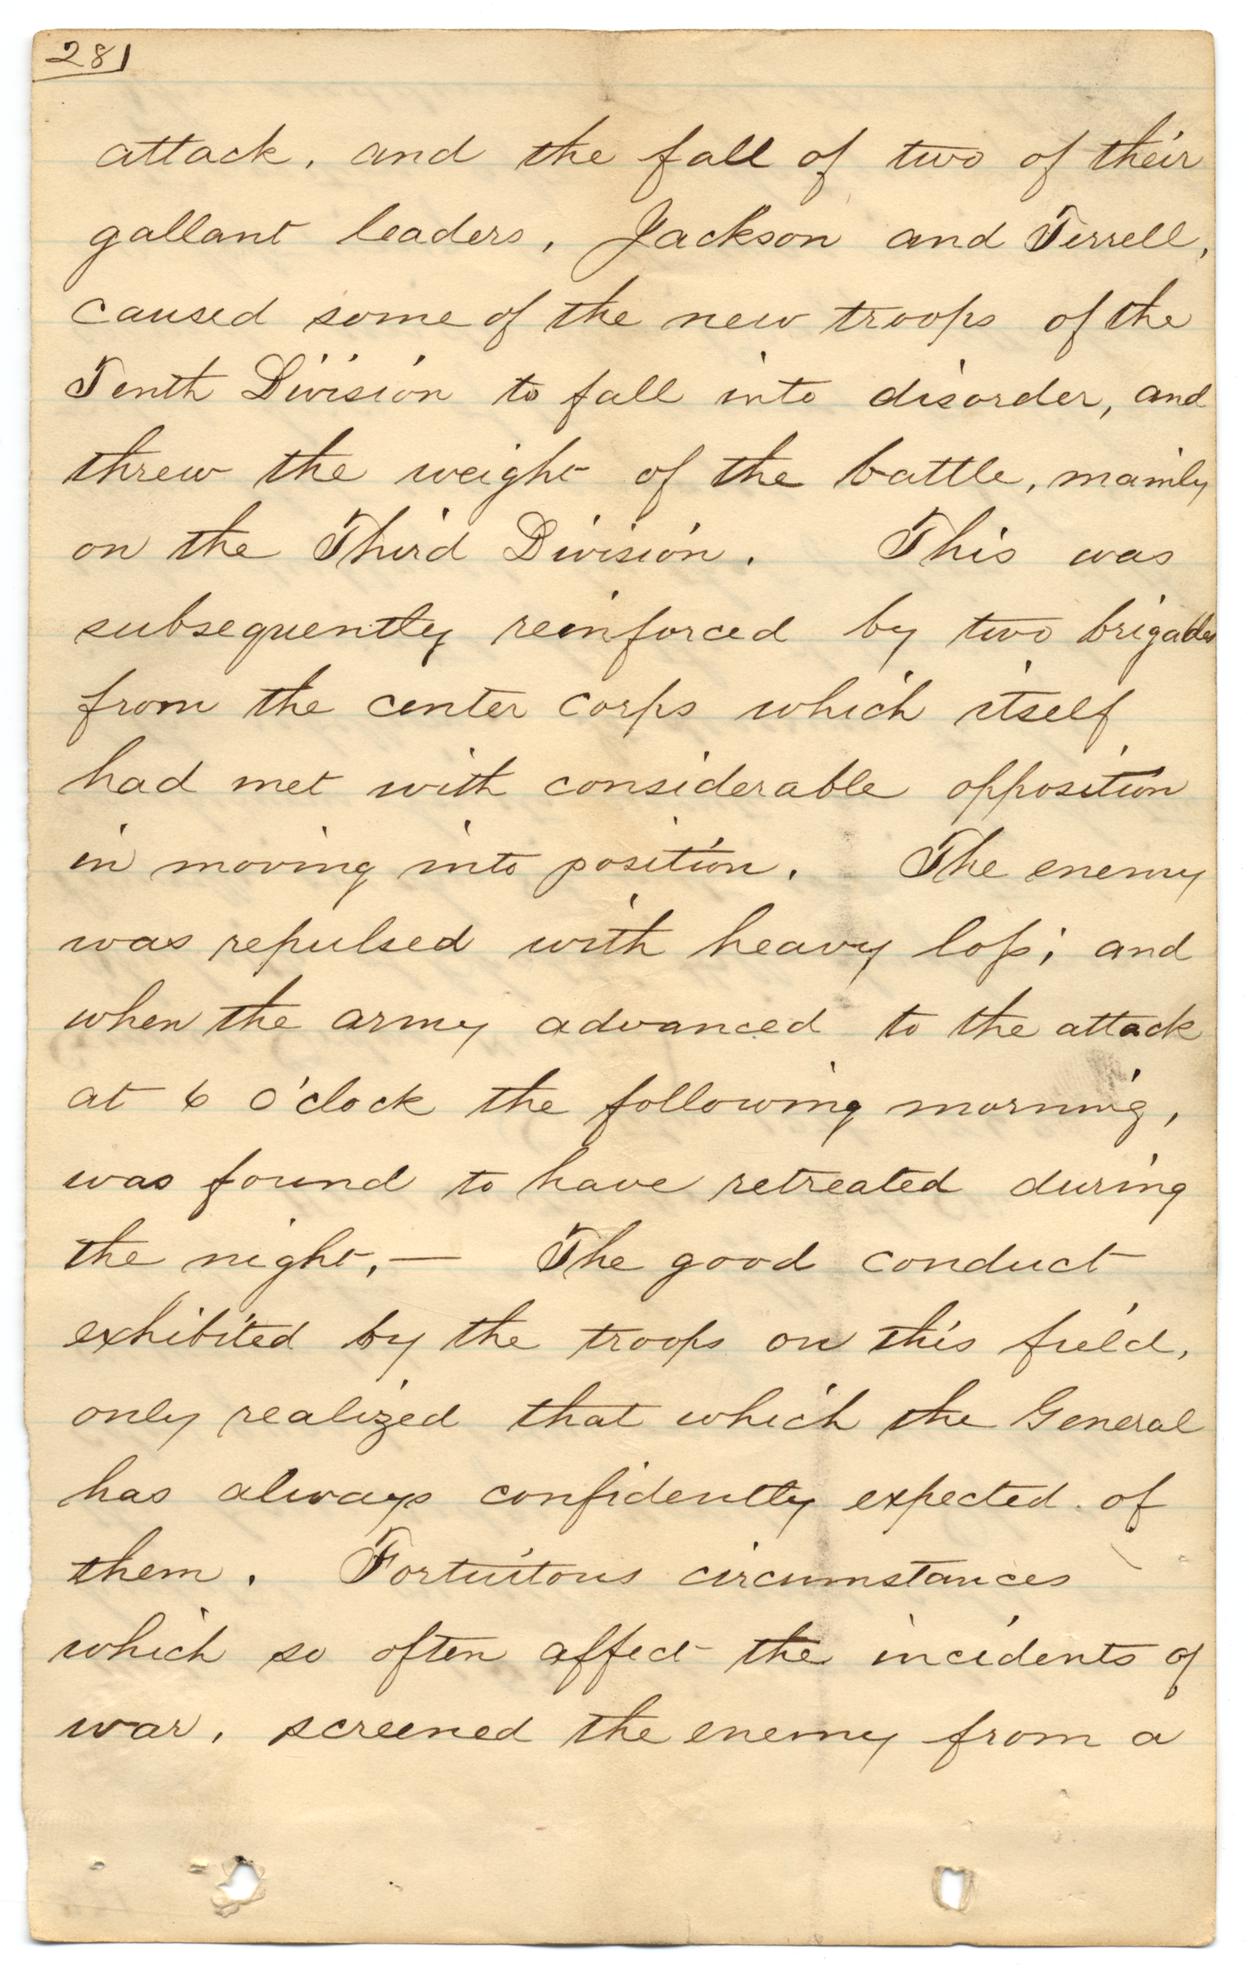 28
attack, and the fall of two of their
gallant leaders, Jackson and Terrell,
caused some of the new troops of the
Tenth Division to fall into disorder, and
threw the weight of the battle, mainly
on the Third Division. This was
subsequently reinforced by two brigades
from the center corps which itself
had met with considerable opposition
in moving into position. The enemy
was repulsed with heavy loſs; and
when the army advanced to the attack
at 6 o'clock the following morning,
was found to have retreated during
the night.— The good conduct
exhibited by the troops on this field,
only realized that which the General
has always confidently expected of
them. Fortuitous circumstances
which so often affect the incidents of
war, screened the enemy from a